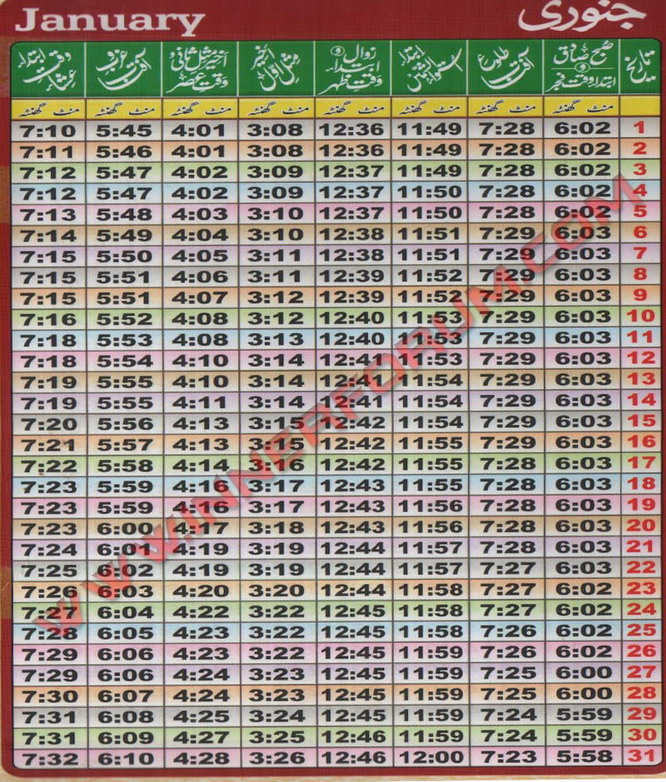 January جنوری
تاریخ صبح صادق و ابتداء وقت فجر طلوع آفتاب ابتداء زوال و ابتداء وقت ظہر اخیر مثل اول اخیر مثل ثانی وقت عصر غروب آفتاب وقت ابتداء عشاء
منٹ گھنٹہ منٹ گھنٹہ منٹ گھنٹہ منٹ گھنٹہ منٹ گھنٹہ منٹ گھنٹہ منٹ گھنٹہ منٹ گھنٹہ
1 6:02 7:28 11:49 12:36 3:08 4:01 5:45 7:10
2 6:02 7:28 11:49 12:36 3:08 4:01 5:46 7:11
3 6:02 7:28 11:49 12:37 3:09 4:02 5:47 7:12
4 6:02 7:28 11:50 12:37 3:09 4:02 5:47 7:12
5 6:02 7:28 11:50 12:37 3:10 4:03 5:48 7:13
6 6:03 7:29 11:51 12:38 3:10 4:04 5:49 7:14
7 6:03 7:29 11:51 12:38 3:11 4:05 5:50 7:15
8 6:03 7:29 11:52 12:39 3:11 4:06 5:51 7:15
9 6:03 7:29 11:52 12:39 3:12 4:07 5:51 7:15
10 6:03 7:29 11:53 12:40 3:12 4:08 5:52 7:16
11 6:03 7:29 11:53 12:40 3:13 4:08 5:53 7:18
12 6:03 7:29 11:53 12:41 3:14 4:10 5:54 7:18
13 6:03 7:29 11:54 3:14 4:10 5:55 7:19
14 6:03 7:29 11:54 12:41 3:14 4:11 5:55 7:19
15 6:03 7:29 11:54 12:42 4:13 5:56 7:20
16 6:03 7:29 11:55 12:42 3:15 4:13 5:57 7:21
17 6:03 7:28 11:55 12:42 3:16 4:14 5:58 7:22
18 6:03 7:28 11:55 12:43 3:17 5:59 7:23
19 6:03 7:28 11:56 12:43 3:17 4:16 5:59 7:23
20 6:03 7:28 11:56 12:43 3:18 4:17 6:00 7:23
21 6:03 7:28 11:57 12:44 3:19 4:19 6:01 7:24
22 6:03 7:27 11:57 12:44 3:19 4:19 6:02 7:25
23 6:02 7:27 11:58 12:44 3:20 4:20 6:03 7:26
24 6:02 7:27 11:58 12:45 3:22 4:22 6:04
25 6:02 7:26 11:58 12:45 3:22 4:23 6:05 7:28
26 6:02 7:26 11:59 12:45 3:22 4:23 6:06 7:29
27 6:00 7:25 11:59 12:45 3:23 4:24 6:06 7:29
28 6:00 7:25 11:59 12:45 3:23 4:24 6:07 7:30
29 5:59 7:24 11:59 12:45 3:24 4:25 6:08 7:31
30 5:59 7:24 11:59 12:46 3:25 4:27 6:09 7:31
31 5:58 7:23 12:00 12:46 3:26 4:28 6:10 7:32
WWW.INNERFORUM.COM